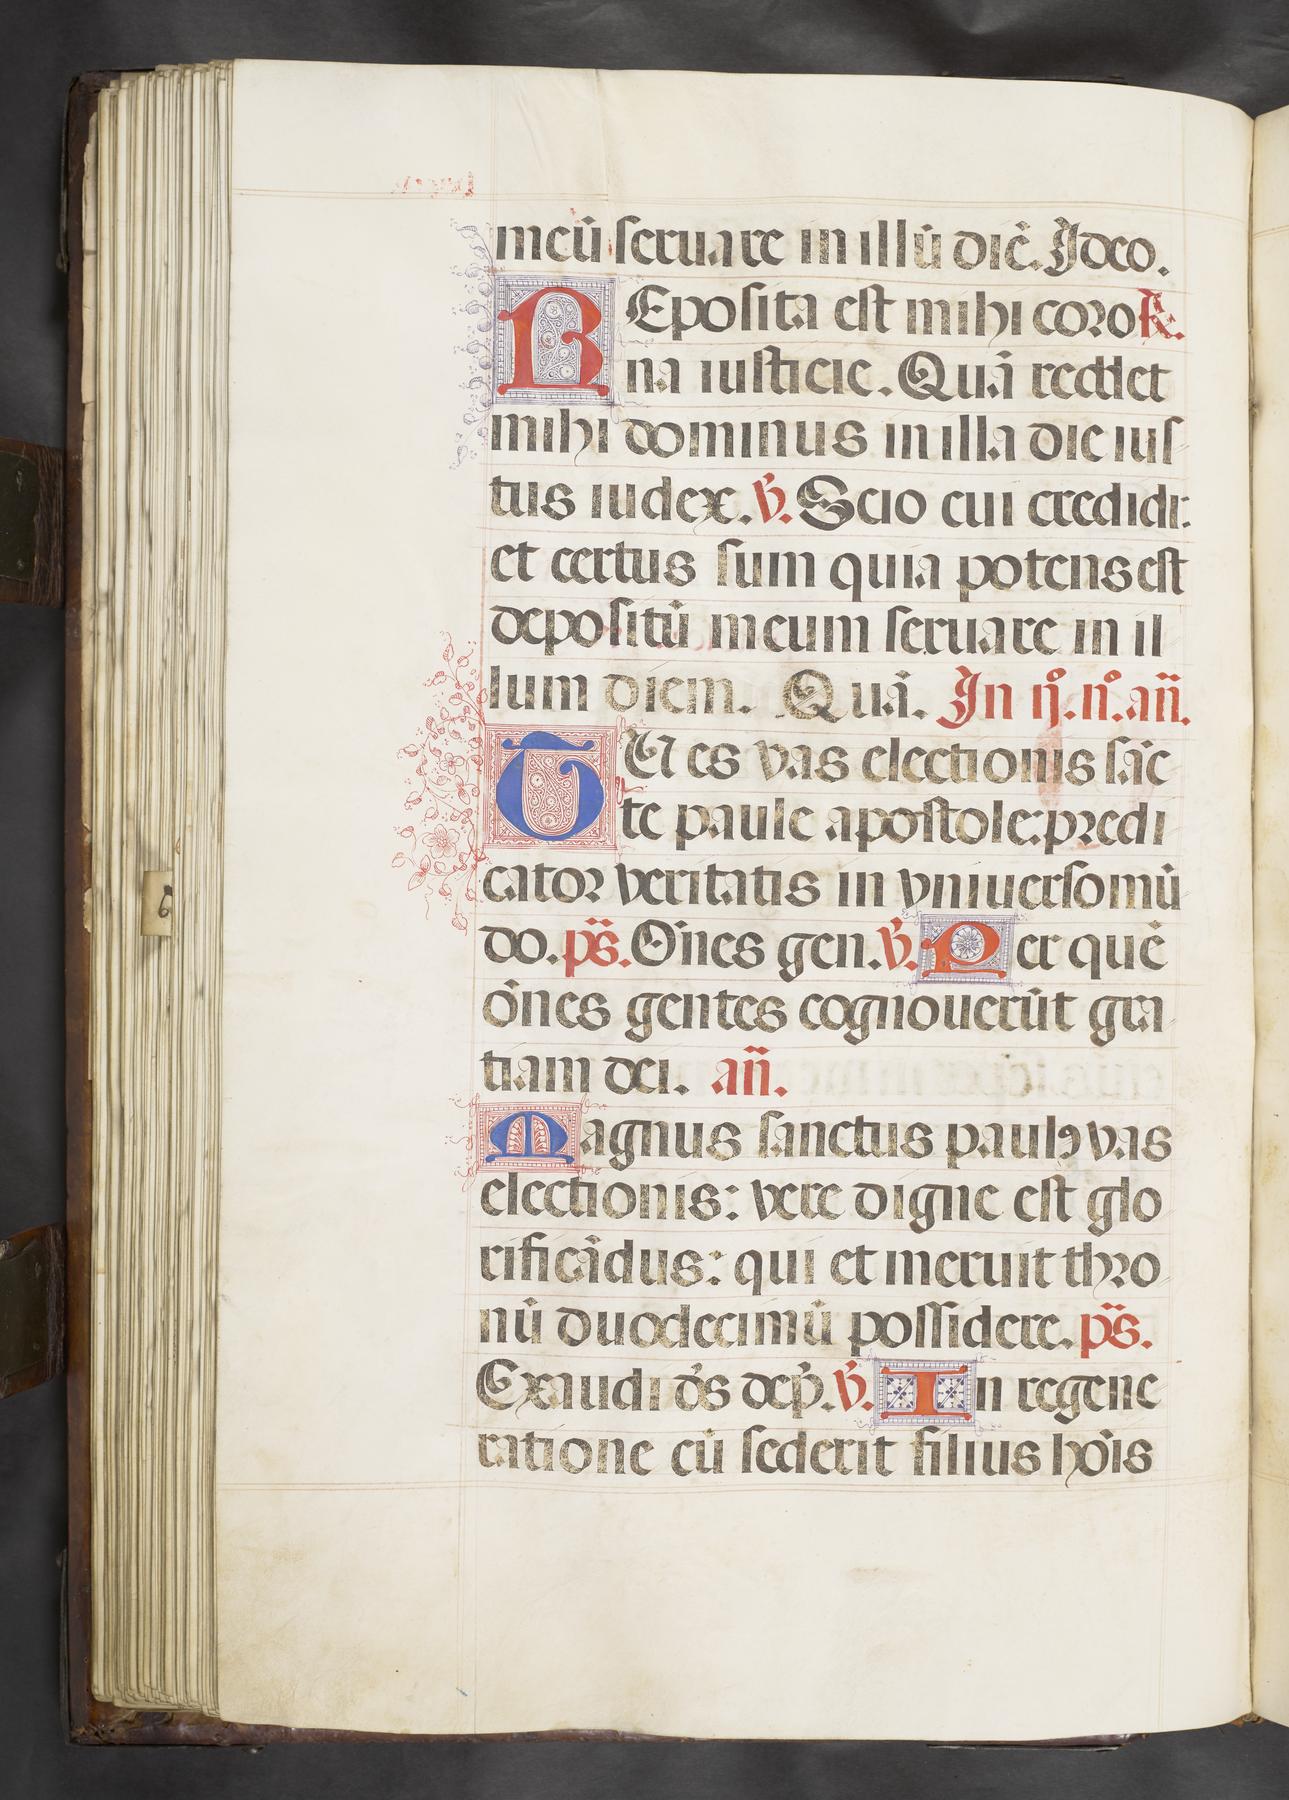 meū seruare in illū diē. Ideo.
REposita est mihi coro R̷.
na iusticie. Quā reddet
mihi dominus in illa die ius
tus iudex. v̄. Scio cui credidi:
et certus sum quia potens est
depositū meum seruare in il
lum diem. Quā. In ij. n̊. añ.
TU es vas electionis sāc
te paule apostole: predi
cator veritatis in vniuerso mū
do. ps̄. Om̄es gen. v̄. Per quē
om̄es gentes cognouerūt gra
tiam dei. añ.
Magnus sanctus paulꝯ vas
electionis: vere digne est glo
rificādus: qui et meruit thro
nū duodecimū possidere. ps̄.
Exaudi ds̄ dep̄. v̄. In regene
ratione cū sederit filius hōis
6